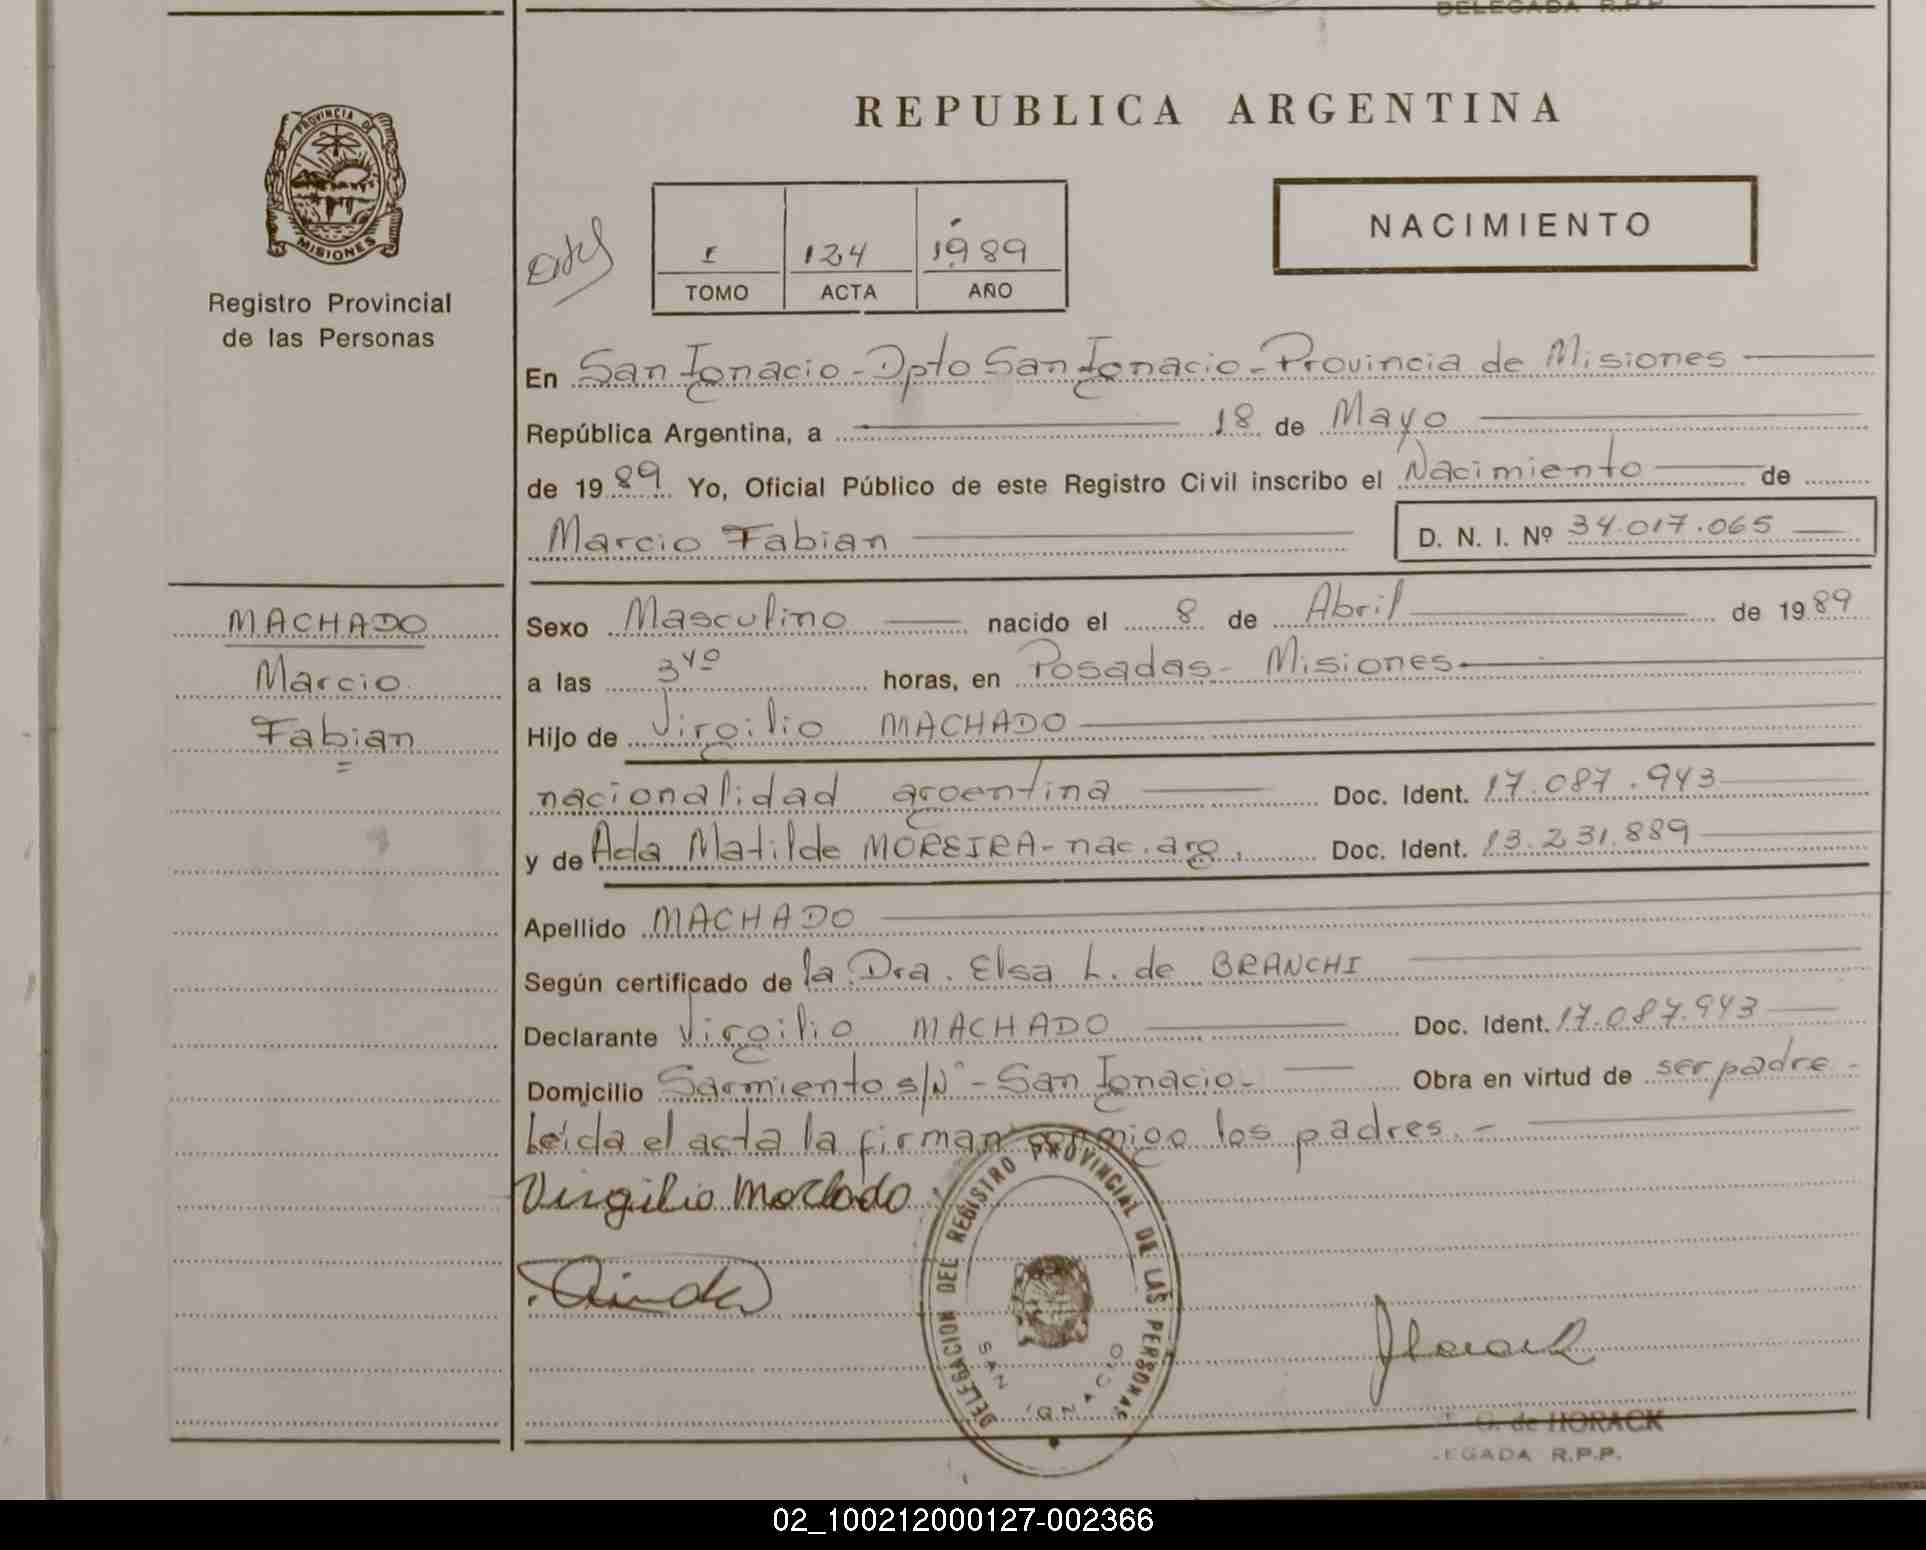 DELEGADA R.P.P.
REPUBLICA ARGENTINA
PROVINCIA DE
MISIONES
Registro Provincial
de las Personas
I 124 1989
TOMO ACTA AÑO
NACIMIENTO
En San Ignacio - Dpto San Ignacio - Provincia de Misiones
República Argentina, a 18 de Mayo
de 1989 Yo, Oficial Público de este Registro Civil inscribo el Nacimiento de
Marcio Fabian D. N. I. Nº 34.017.065
MACHADO
Marcio
Fabian
Sexo Masculino nacido el 8 de Abril de 1989
a las 3⁴⁰ horas, en Posadas - Misiones
Hijo de Virgilio MACHADO
nacionalidad argentina Doc. Ident. 17.087.943
y de Ada Matilde MOREIRA - nac. arg. Doc. Ident. 13.231.889
Apellido MACHADO
Según certificado de la Dra. Elsa L. de BRANCHI
Declarante Virgilio MACHADO Doc. Ident. 17.087.943
Domicilio Sarmiento s/Nº - San Ignacio - Obra en virtud de ser padre -
Leída el acta la firman conmigo los padres. -
Virgilio Machado
DELEGACION DEL REGISTRO PROVINCIAL DE LAS PERSONAS
SAN IGNACIO
G. de HORACK
LEGADA R.P.P.
02_100212000127-002366